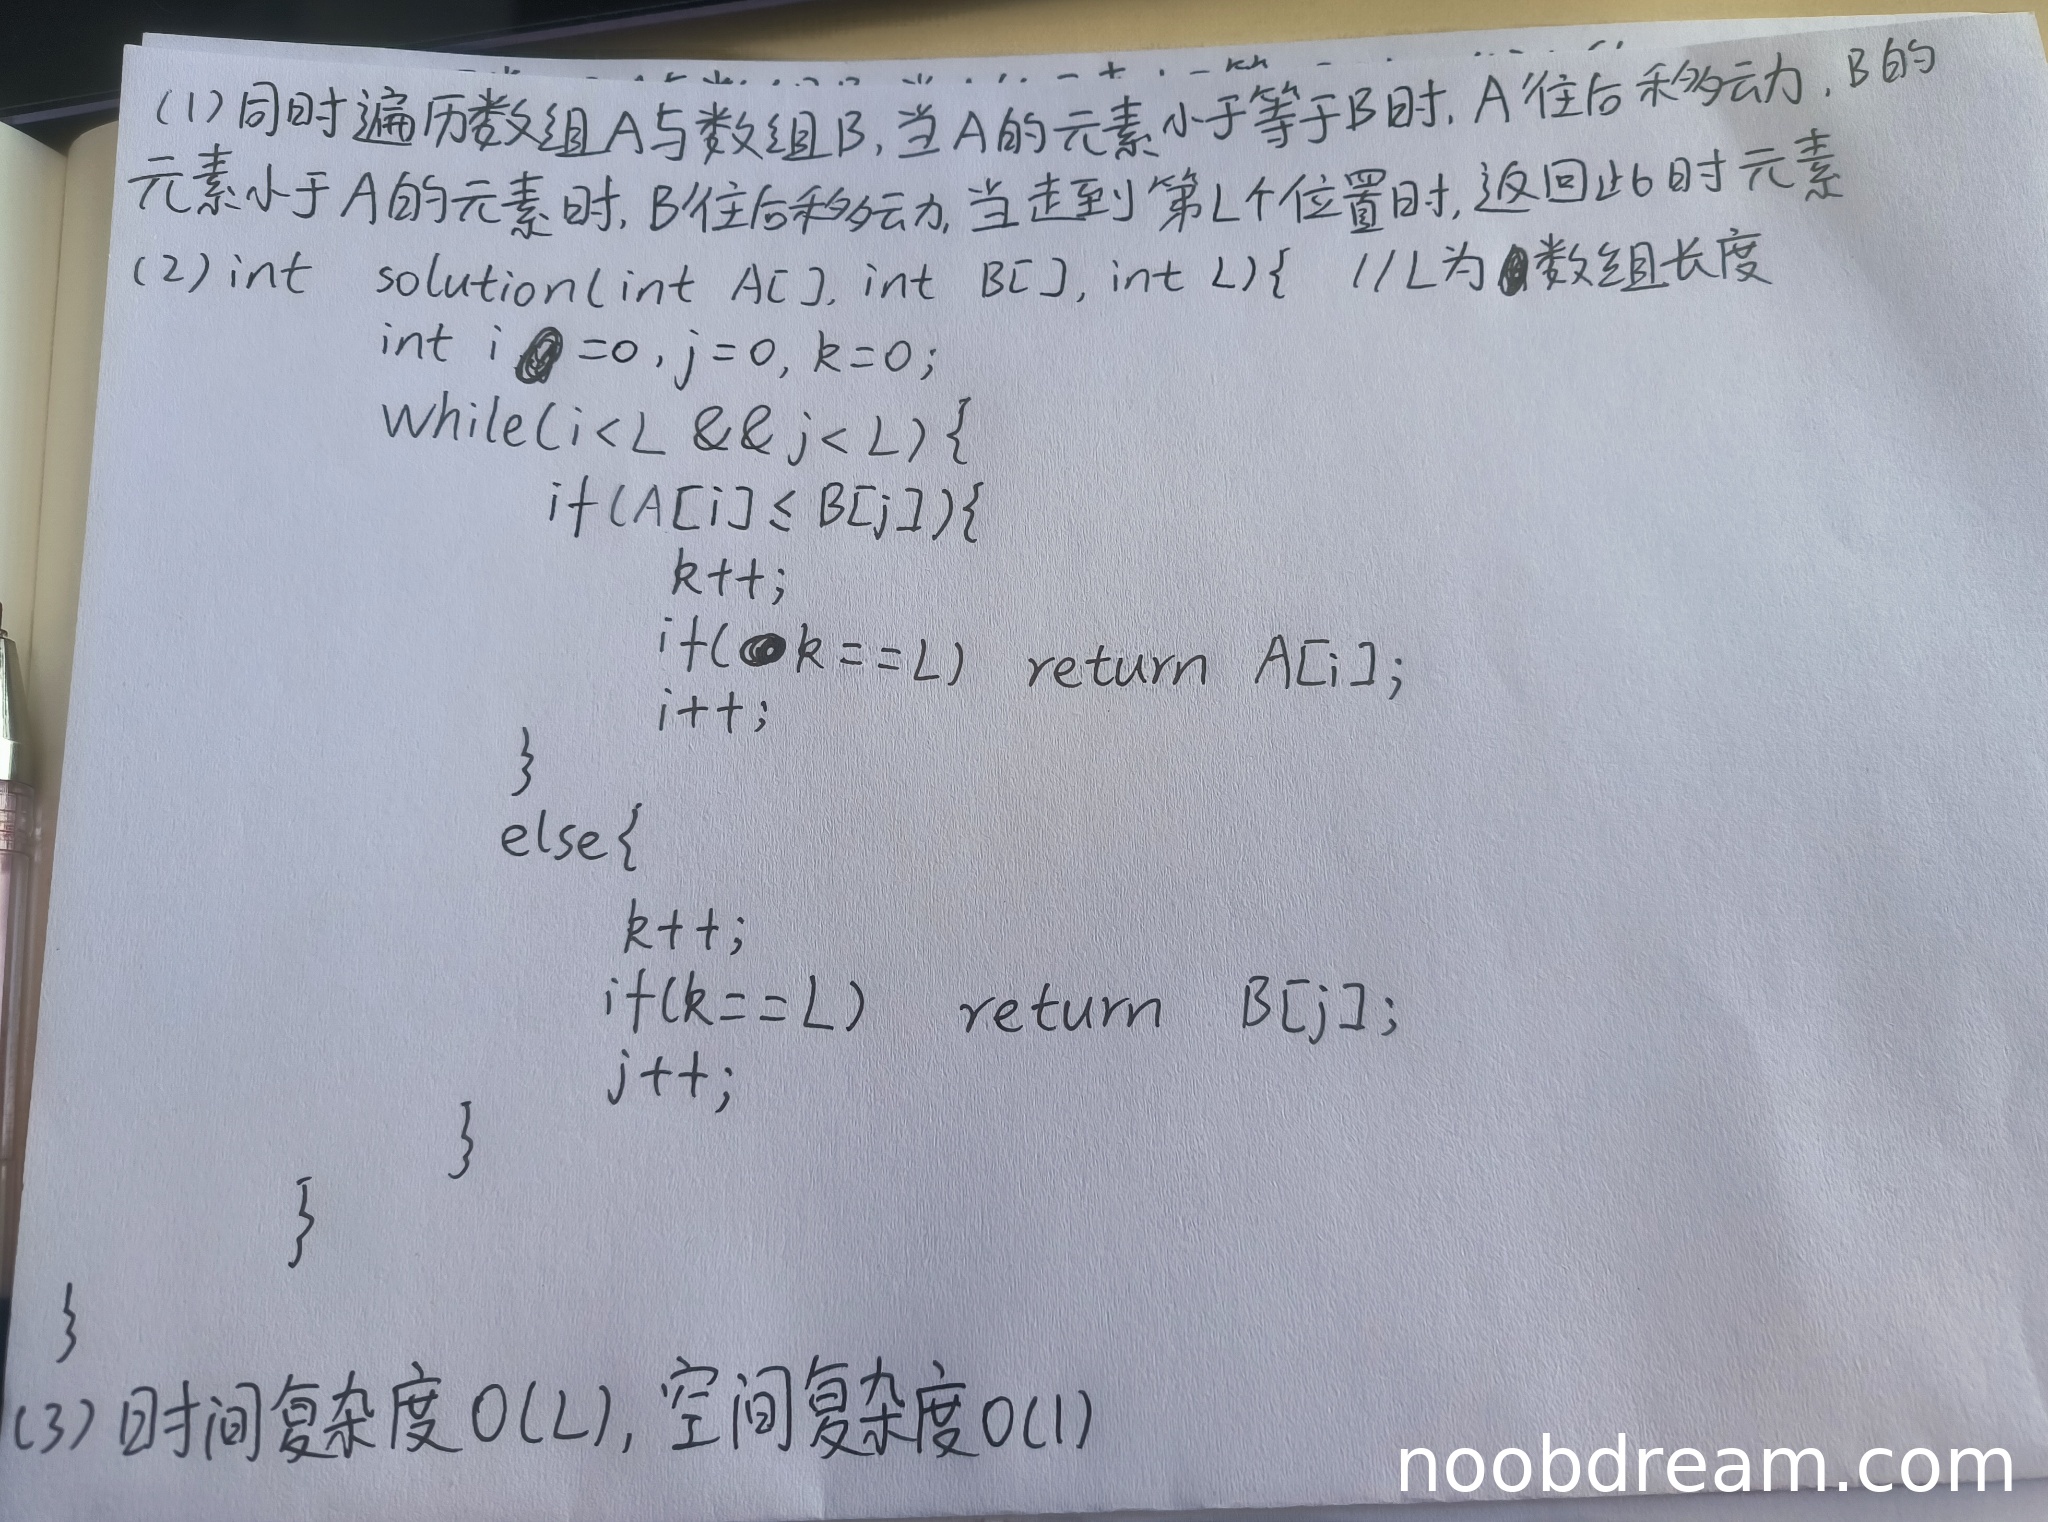 (1)同时遍历数组A与数组B,当A的元素小于等于B时,A往后移动,B的
元素小于A的元素时,B往后移动,当走到第L个位置时,返回此时元素
(2)int solution(int A[], int B[], int L){ //L为数组长度
int i=0,j=0,k=0;
while(i<L && j<L){
if(A[i]≤B[j]){
k++;
if(k==L) return A[i];
i++;
}
else{
k++;
if(k==L) return B[j];
j++;
}
}
}
(3)时间复杂度O(L),空间复杂度O(1)
noobdream.com